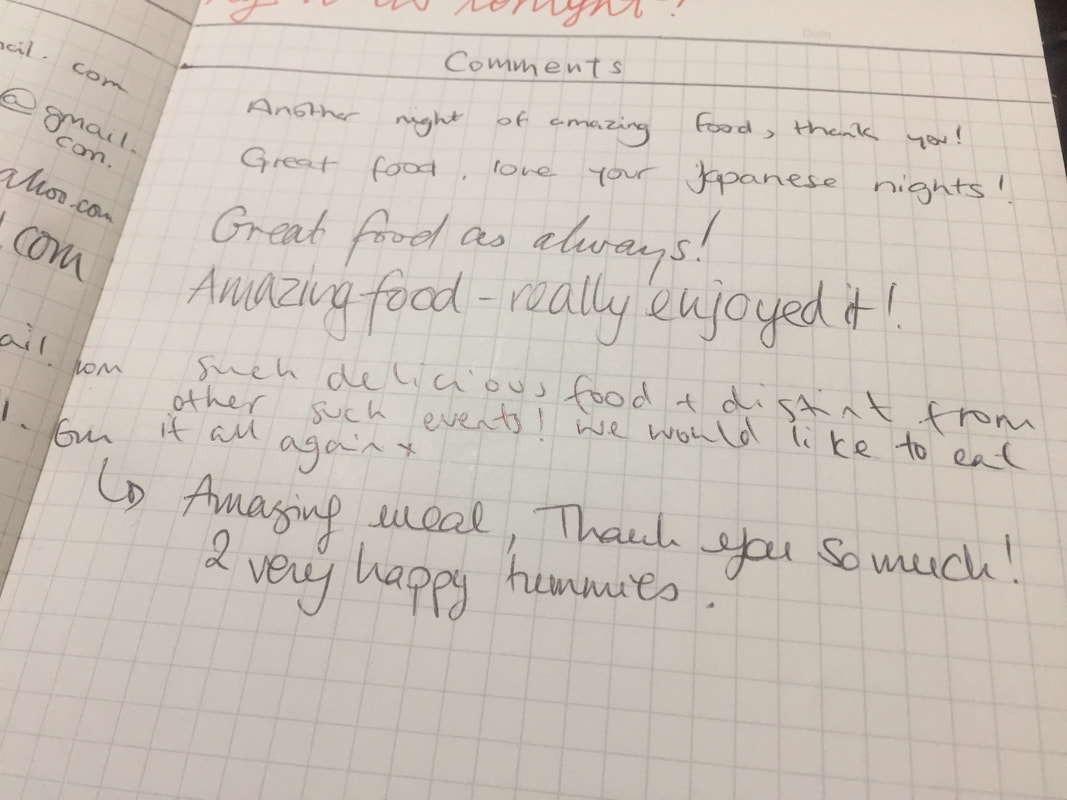 tonight!
Date
Comments
com
Another night of amazing food, thank you!
@gmail.
con.
Great food. love your Japanese nights!
ahoo.com
Great food as always!
com
Amazing food - really enjoyed it!
ail. com
such delicious food + distint from
other such events! we would like to eat
it all again x
↳ Amazing meal, Thank you so much!
2 very happy tummies.